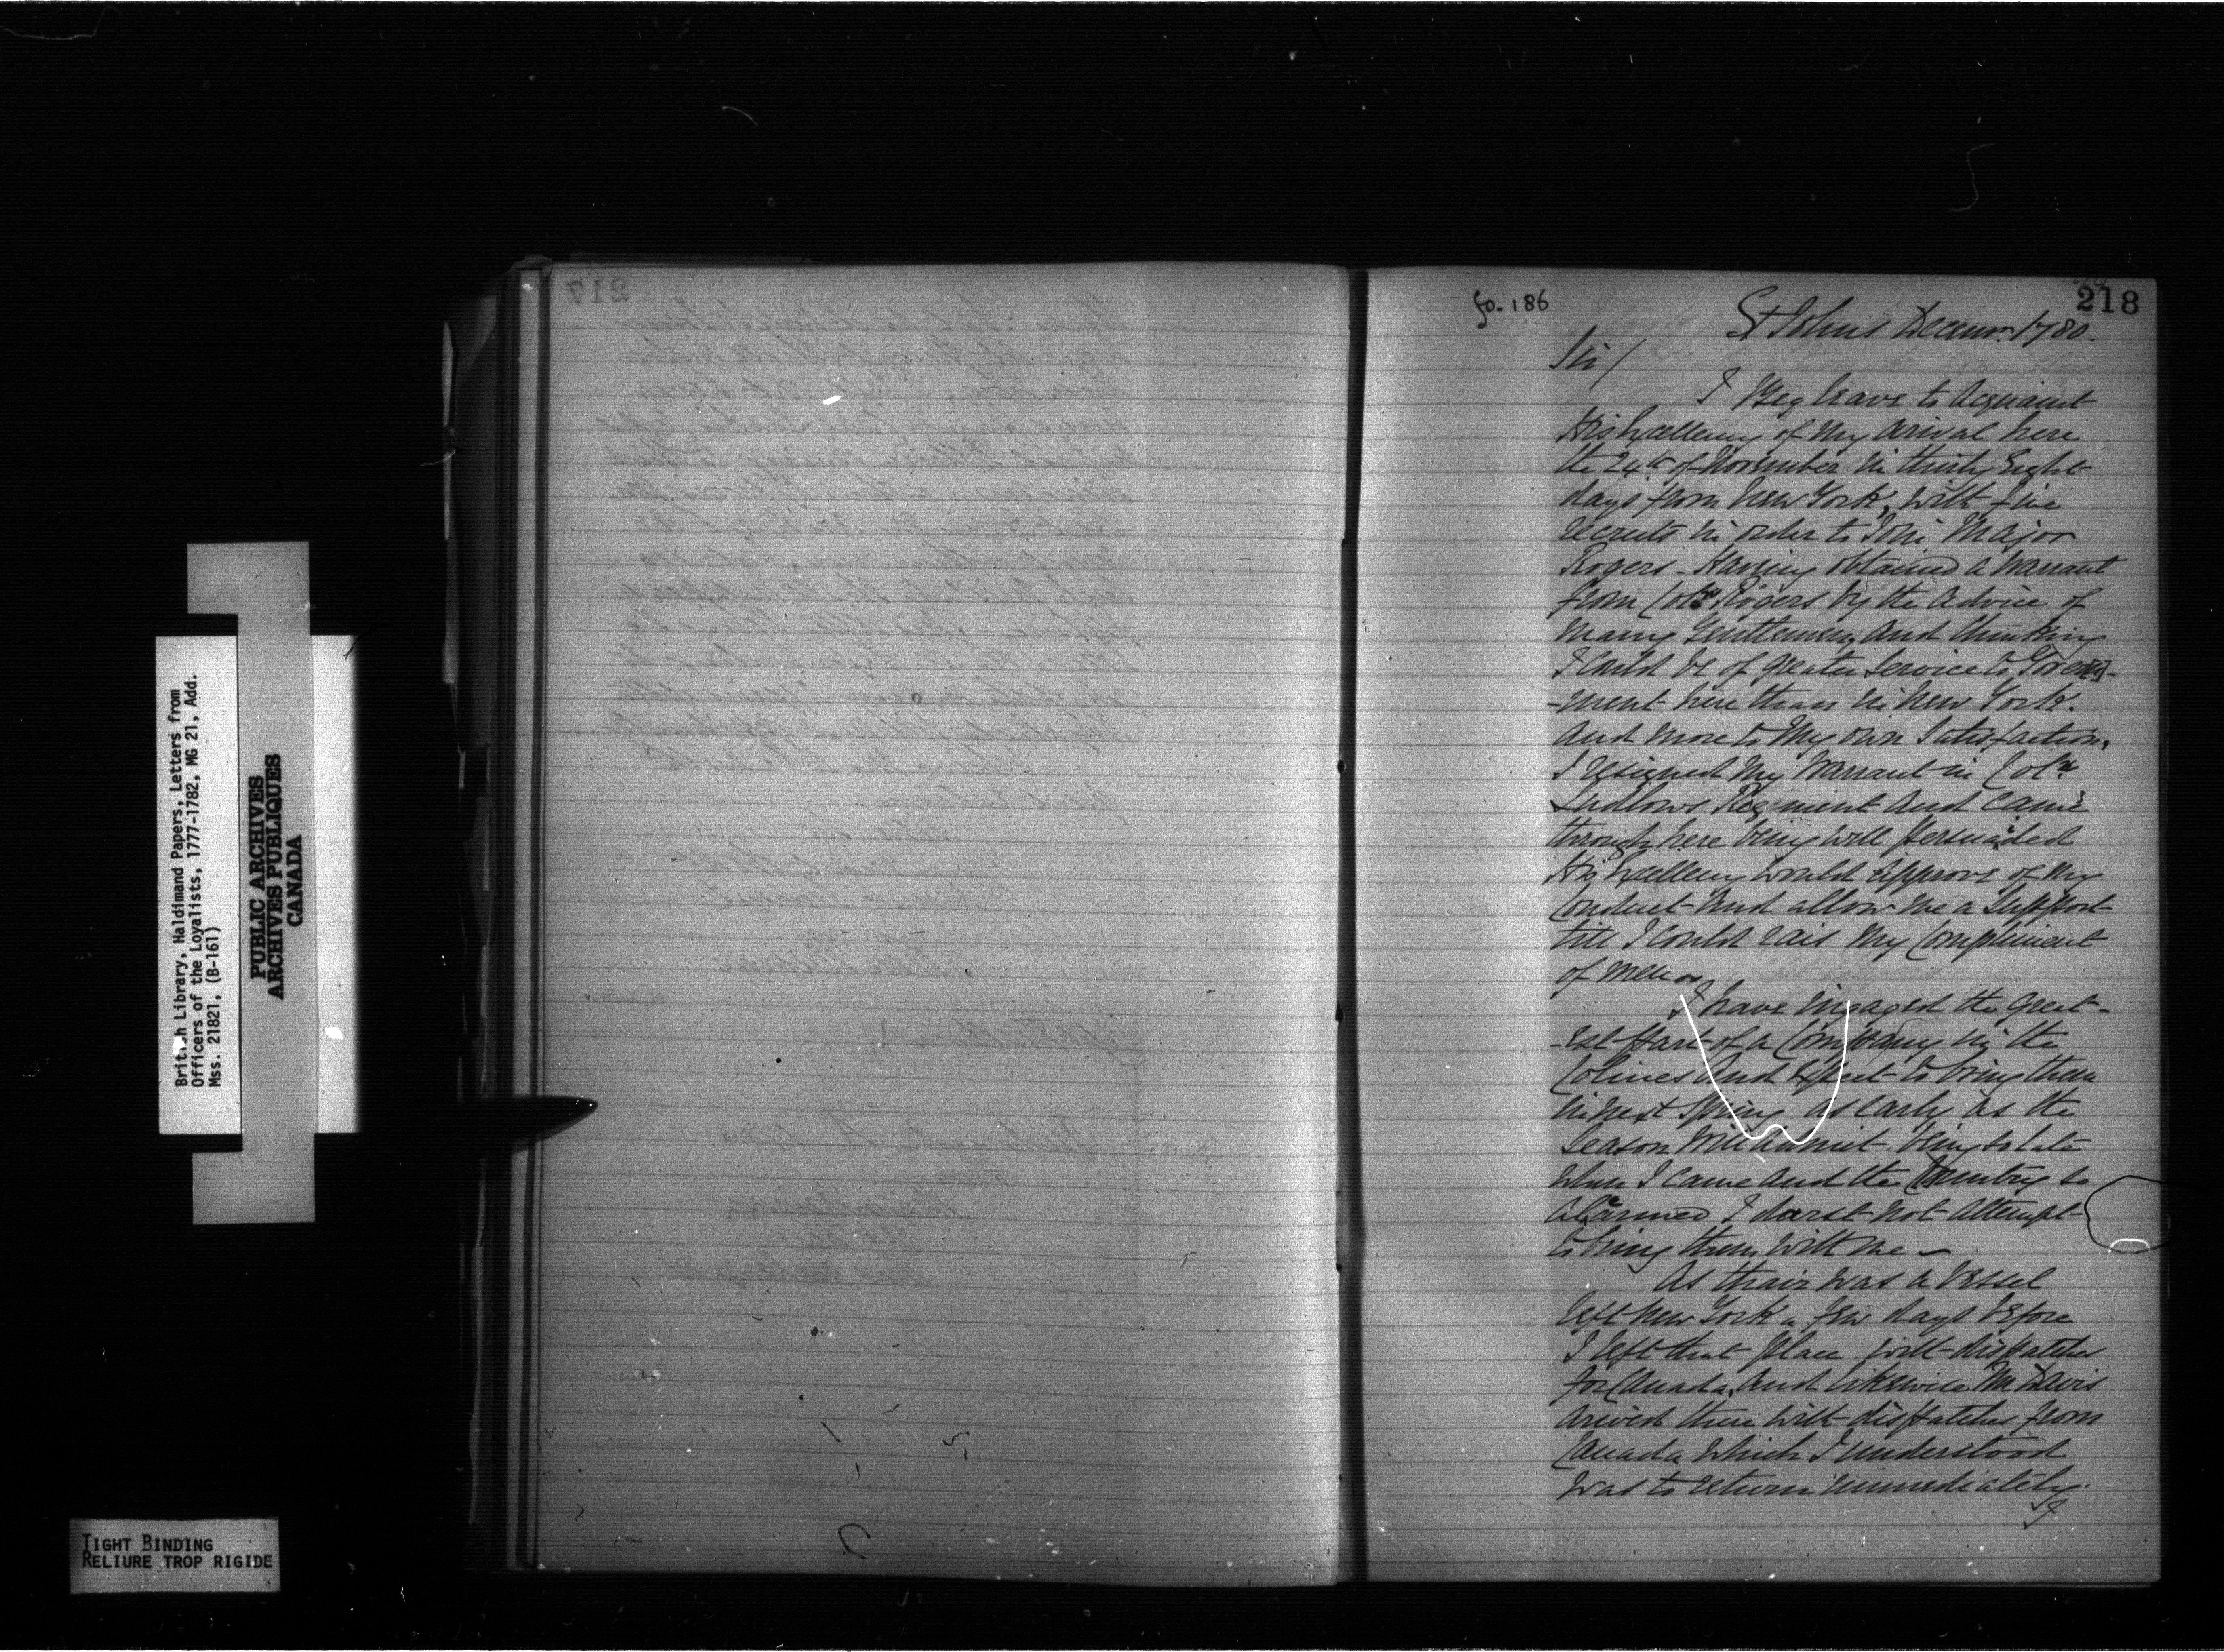 British Library, Haldimand Papers, Letters from
Officers of the Loyalists, 1777-1782, MG 21, Add.
Mss. 21821, (B-161)
PUBLIC ARCHIVES
ARCHIVES PUBLIQUES
CANADA
TIGHT BINDING
RELIURE TROP RIGIDE
217
fo. 186
218
St Johns Decemr. 1780.
Sir/
I Beg leave to Acquaint
His Excellency of My Arival here
the 24th of November in thirty Eight
days from New York, with five
recruits in order to Join Major
Rogers - Having obtained a Warrant
from Colo Rogers by the Advice of
Many Gentlemen, And thinking
I Could be of greater Service to Govern-
-ment here than in New York.
And More to My own Satisfaction,
I resigned My Warrant in Colo
Ludlows Regiment And Came
through here being Well Persuaded
His Excellency Would Approve of My
Conduct And allow me a Support
till I Could rais My Compliment
of Men
I have ingaged the Great-
-est Part of a Company in the
Colines And Expect to bring them
in next Spring as early as the
Season Will admit being to late
When I Came And the Country so
Alarmed I darst not Attempt
to bring them With Me
As thair Was a Vessel
left New York a few days before
I left that Place With dispatches
for Canada, And likewise Mr Davis
Arived there With dispatches from
Canada Which I understood
Was to return immediately.
I